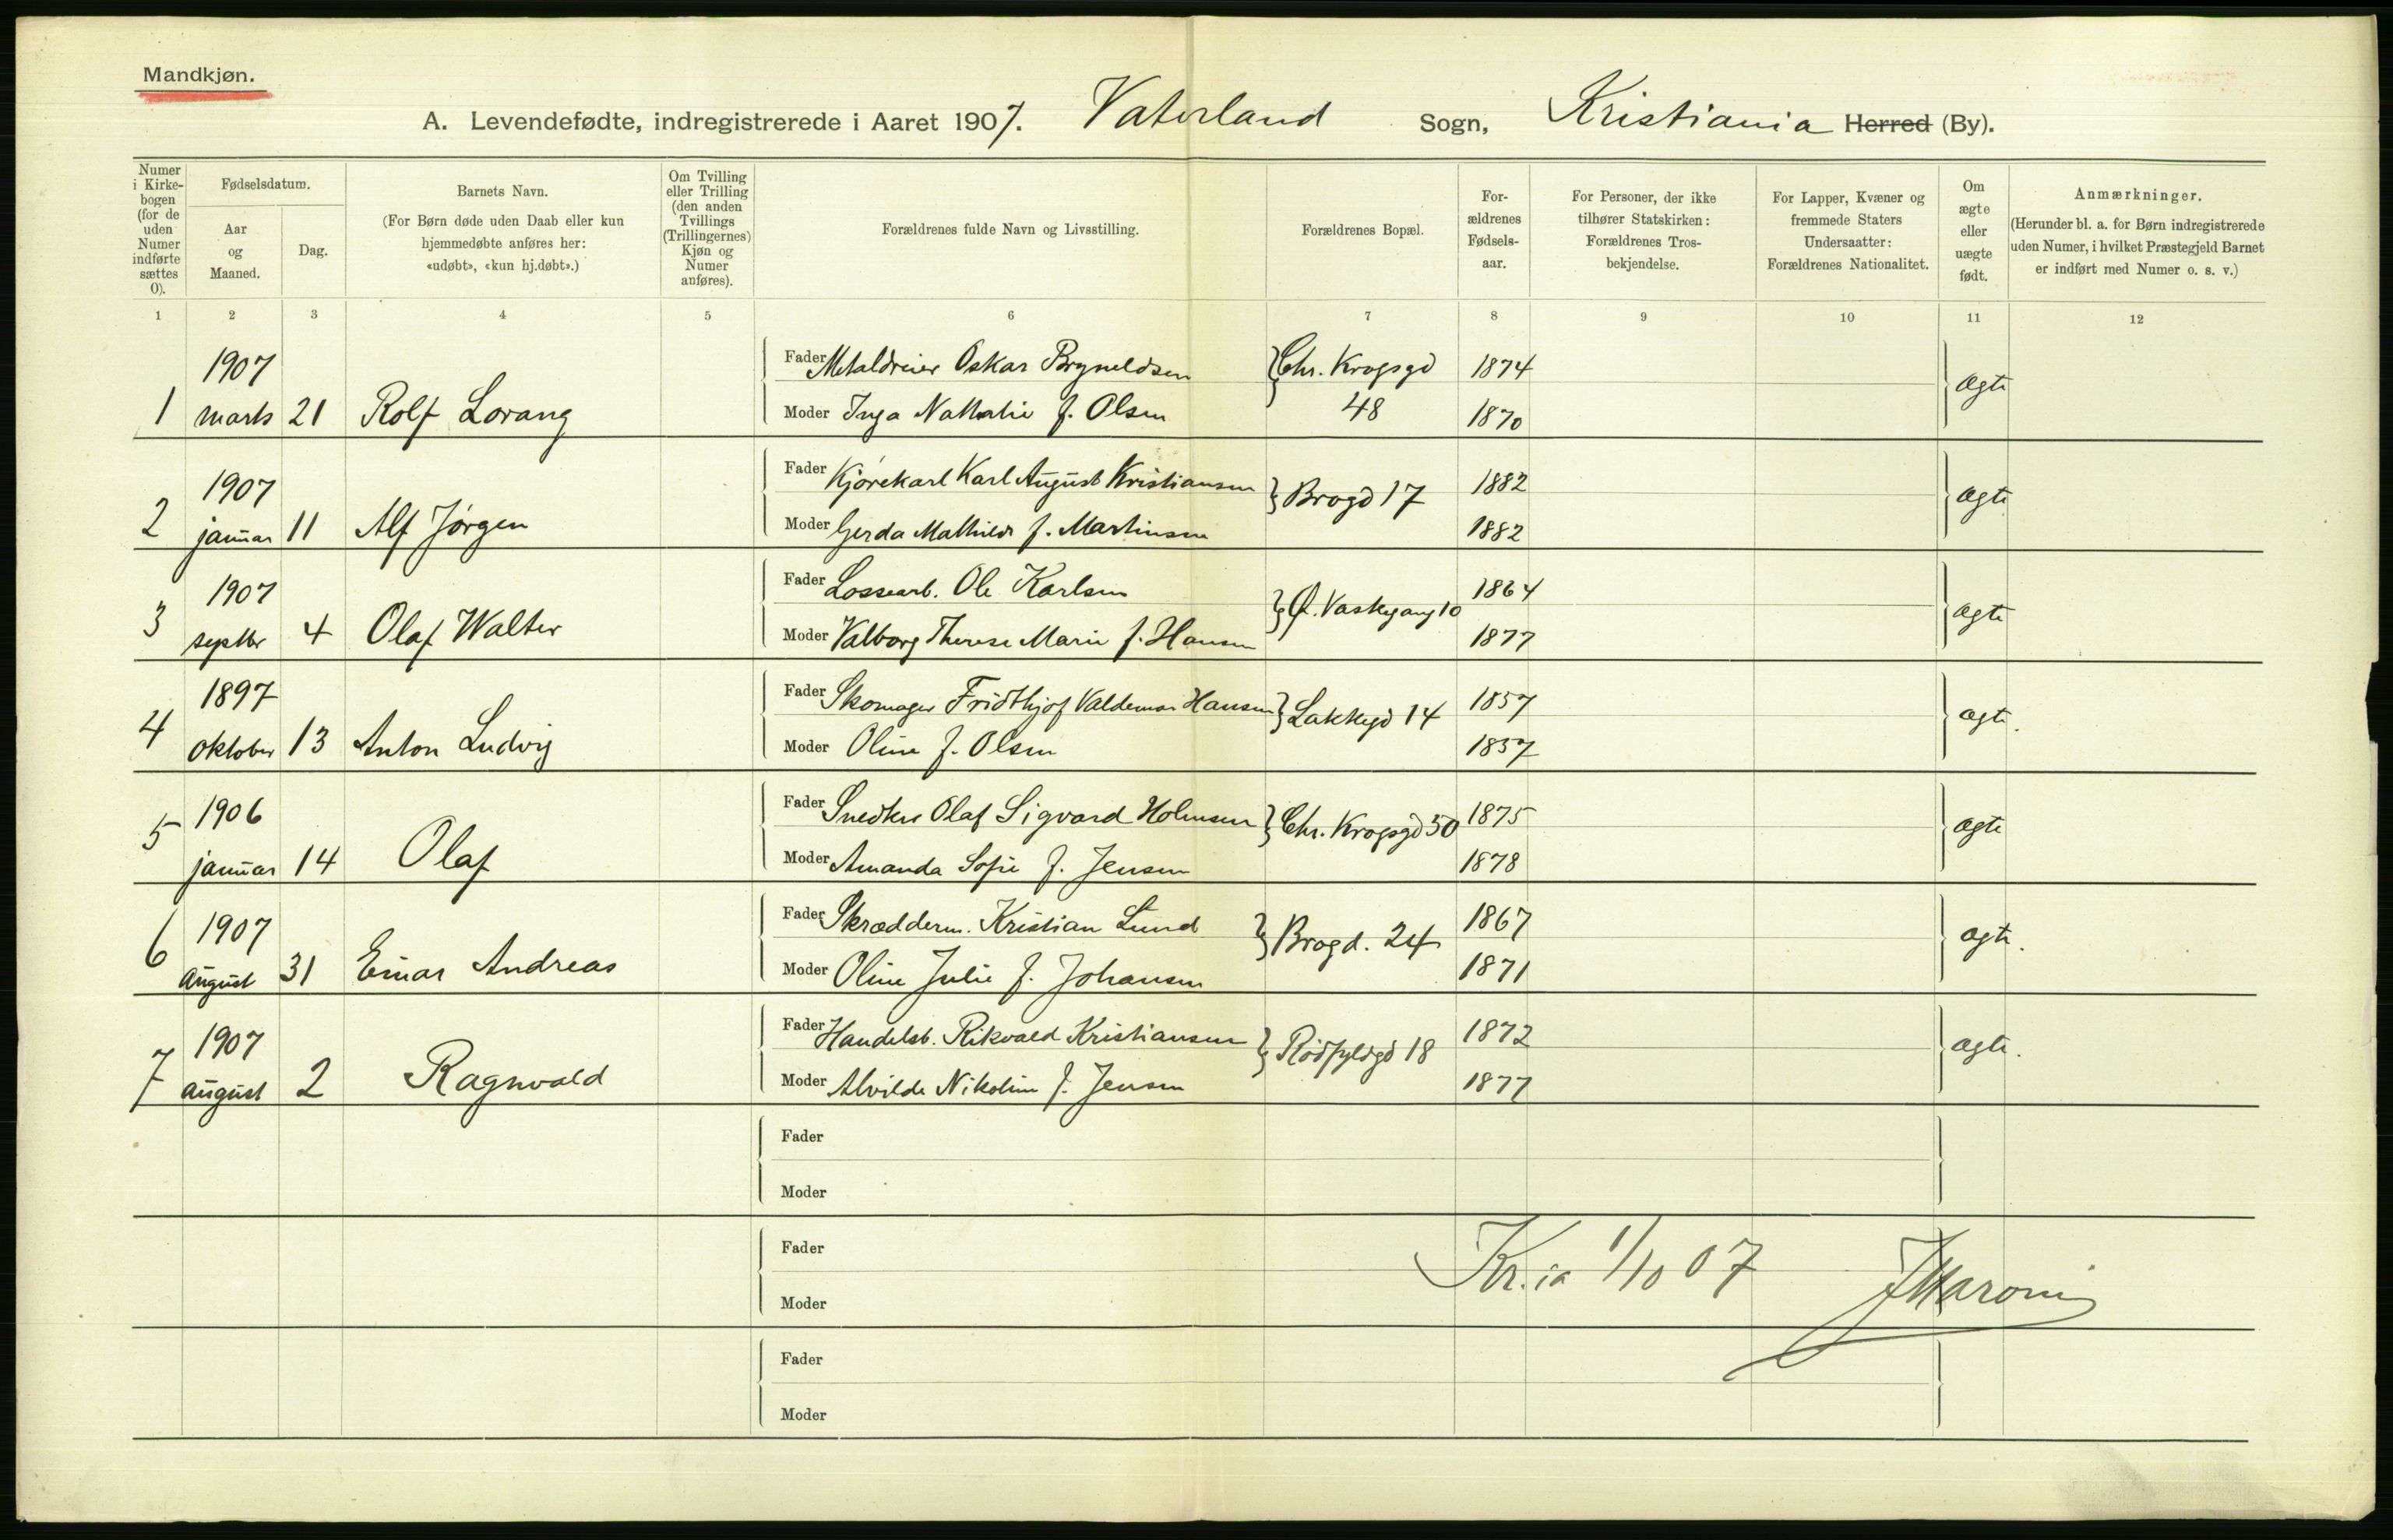 Mandkjøn.
A. Levendefødte, indregistrerede i Aaret 1907. Vaterland Sogn, Kristiania Herred (By).
Numer i Kirke-bogen (for de uden Numer indførte sættes 0).
Fødselsdatum.
Aar og Maaned.
Dag.
Barnets Navn.
(For Børn døde uden Daab eller kun hjemmedøbte anføres her: «udøbt», «kun hj.døbt».)
Om Tvilling eller Trilling (den anden Tvillings (Trillingernes) Kjøn og Numer anføres).
Forældrenes fulde Navn og Livsstilling.
Forældrenes Bopæl.
For-ældrenes Fødsels-aar.
For Personer, der ikke tilhører Statskirken: Forældrenes Tros-bekjendelse.
For Lapper, Kvæner og fremmede Staters Undersaatter: Forældrenes Nationalitet.
Om ægte eller uægte født.
Anmærkninger.
(Herunder bl. a. for Børn indregistrerede uden Numer, i hvilket Præstegjeld Barnet er indført med Numer o. s. v.)
1 2 3 4 5 6 7 8 9 10 11 12
1907 Fader Metaldreier Oskar Bryneldsen Chr. Krogsgd 1874 ægte
1 marts 21 Rolf Lorang Moder Inga Nathalie f. Olsen 48 1870
1907 Fader Kjørekarl Karl August Kristiansen Brogd 17 1882 ægte
2 januar 11 Alf Jørgen Moder Gerda Mathilde f. Martinsen 1882
1907 Fader Lossearb. Ole Karlsen Ø. Vaskegang 10 1864 ægte
3 septbr 4 Olaf Walter Moder Valborg Therese Marie f. Hansen 1877
1897 Fader Skomager Fridthjof Valdemar Hansen Lakkegd 14 1857 ægte.
4 oktober 13 Anton Ludvig Moder Oline f. Olsen 1857
1906 Fader Snedker Olaf Sigvard Holmsen Chr. Krogsgd 50 1875 ægte
5 januar 14 Olaf Moder Amanda Sofie f. Jensen 1878
1907 Fader Skrædderm. Kristian Lund Brogd. 24 1867 ægte.
6 august 31 Einar Andreas Moder Oline Julie f. Johansen 1871
1907 Fader Handelsb. Rikvald Kristiansen Rødfyldgd 18 1872 ægte.
7 august 2 Ragnvald Moder Alvilde Nikoline f. Jensen 1877
Fader
Moder
Fader
Kr.ia 1/10 07 J Maroni
Moder
Fader
Moder